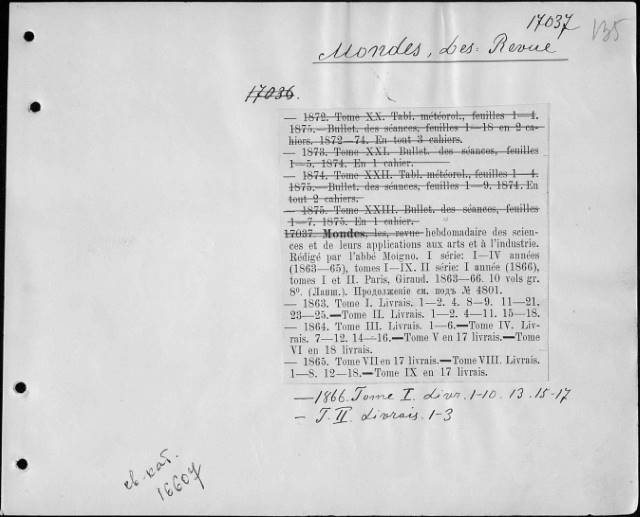 17037 135
Mondes, Les: Revue
17036.
— 1872. Tome XX. Tabl. météorol., feuilles 1—4.
1875.—Bullet. des séances, feuilles 1—18 en 2 ca-
hiers. 1872—74. En tout 3 cahiers.
— 1873. Tome XXI. Bullet. des séances, feuilles
1—5. 1874. En 1 cahier.
— 1874. Tome XXII. Tabl. météorol., feuilles 1—4.
1875.—Bullet. des séances, feuilles 1—9. 1874. En
tout 2 cahiers.
— 1875. Tome XXIII. Bullet. des séances, feuilles
1—7. 1875. En 1 cahier.
17037 Mondes, les, revue hebdomadaire des scien-
ces et de leurs applications aux arts et à l'industrie.
Rédigé par l'abbé Moigno. I série: I—IV années
(1863—65), tomes I—IX. II série: I année (1866),
tomes I et II. Paris, Giraud. 1863—66. 10 vols gr.
8⁰. (Лапш.). Продолженіе см. подъ № 4801.
— 1863. Tome I. Livrais. 1—2. 4. 8—9. 11—21.
23—25.—Tome II. Livrais. 1—2. 4—11. 15—18.
— 1864. Tome III. Livrais. 1—6.—Tome IV. Liv-
rais. 7—12. 14—16.—Tome V en 17 livrais.—Tome
VI en 18 livrais.
— 1865. Tome VII en 17 livrais.—Tome VIII. Livrais.
1—8. 12—18.—Tome IX en 17 livrais.
— 1866. Tome I. Livr. 1-10. 13. 15-17
— T. II. Livrais. 1-3
св. кат.
16607